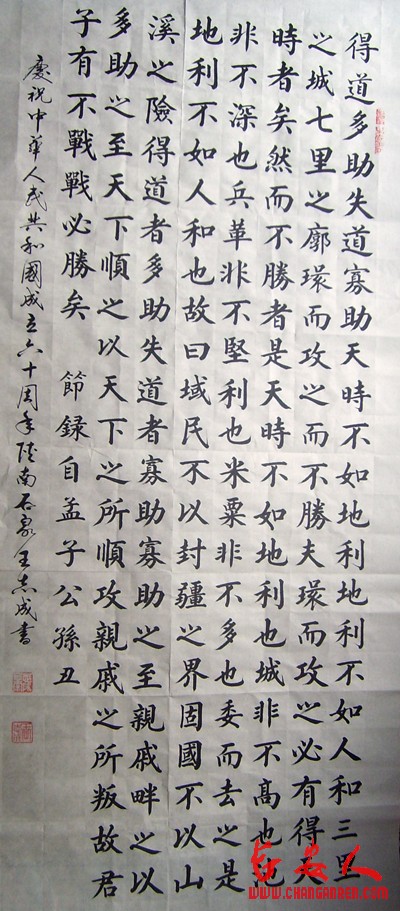 得道多助失道寡助天時不如地利地利不如人和三里
之城七里之廓環而攻之而不勝夫環而攻之必有得天
時者矣然而不勝者是天時不如地利也城非不高也池
非不深也兵革非不堅利也米粟非不多也委而去之是
地利不如人和也故曰域民不以封疆之界固國不以山
溪之險得道者多助失道者寡助寡助之至親戚畔之以
多助之至天下順之以天下之所順攻親戚之所叛故君
子有不戰戰必勝矣 節錄自孟子公孫丑
慶祝中華人民共和國成立六十周年陕南石泉王志成書
长安人
WWW.CHANGANREN.COM